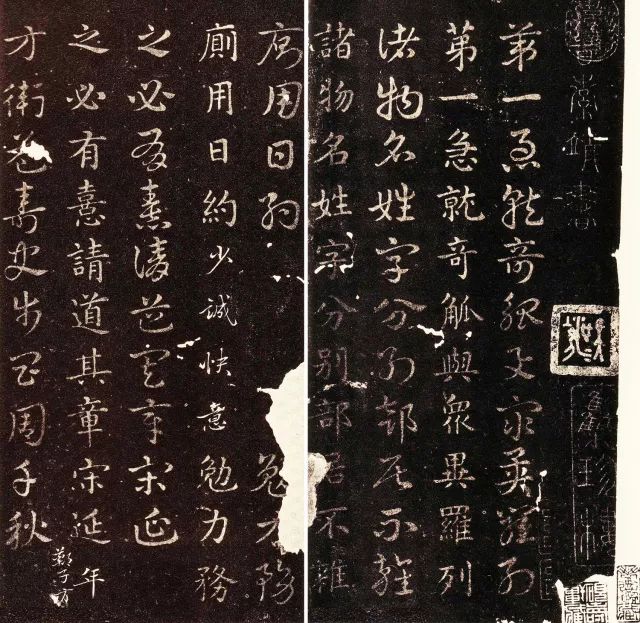 索靖書
第一急就奇觚與衆異羅列
第一急就奇觚與衆異羅列
諸物名姓字分別部居不雜
諸物名姓字分別部居不雜
廁用日約勉力務
廁用日約少誠快意勉力務
之必有憙請道其章宋延
之必有憙請道其章宋延年
鄭子方
方衛益壽史步昌周千秋